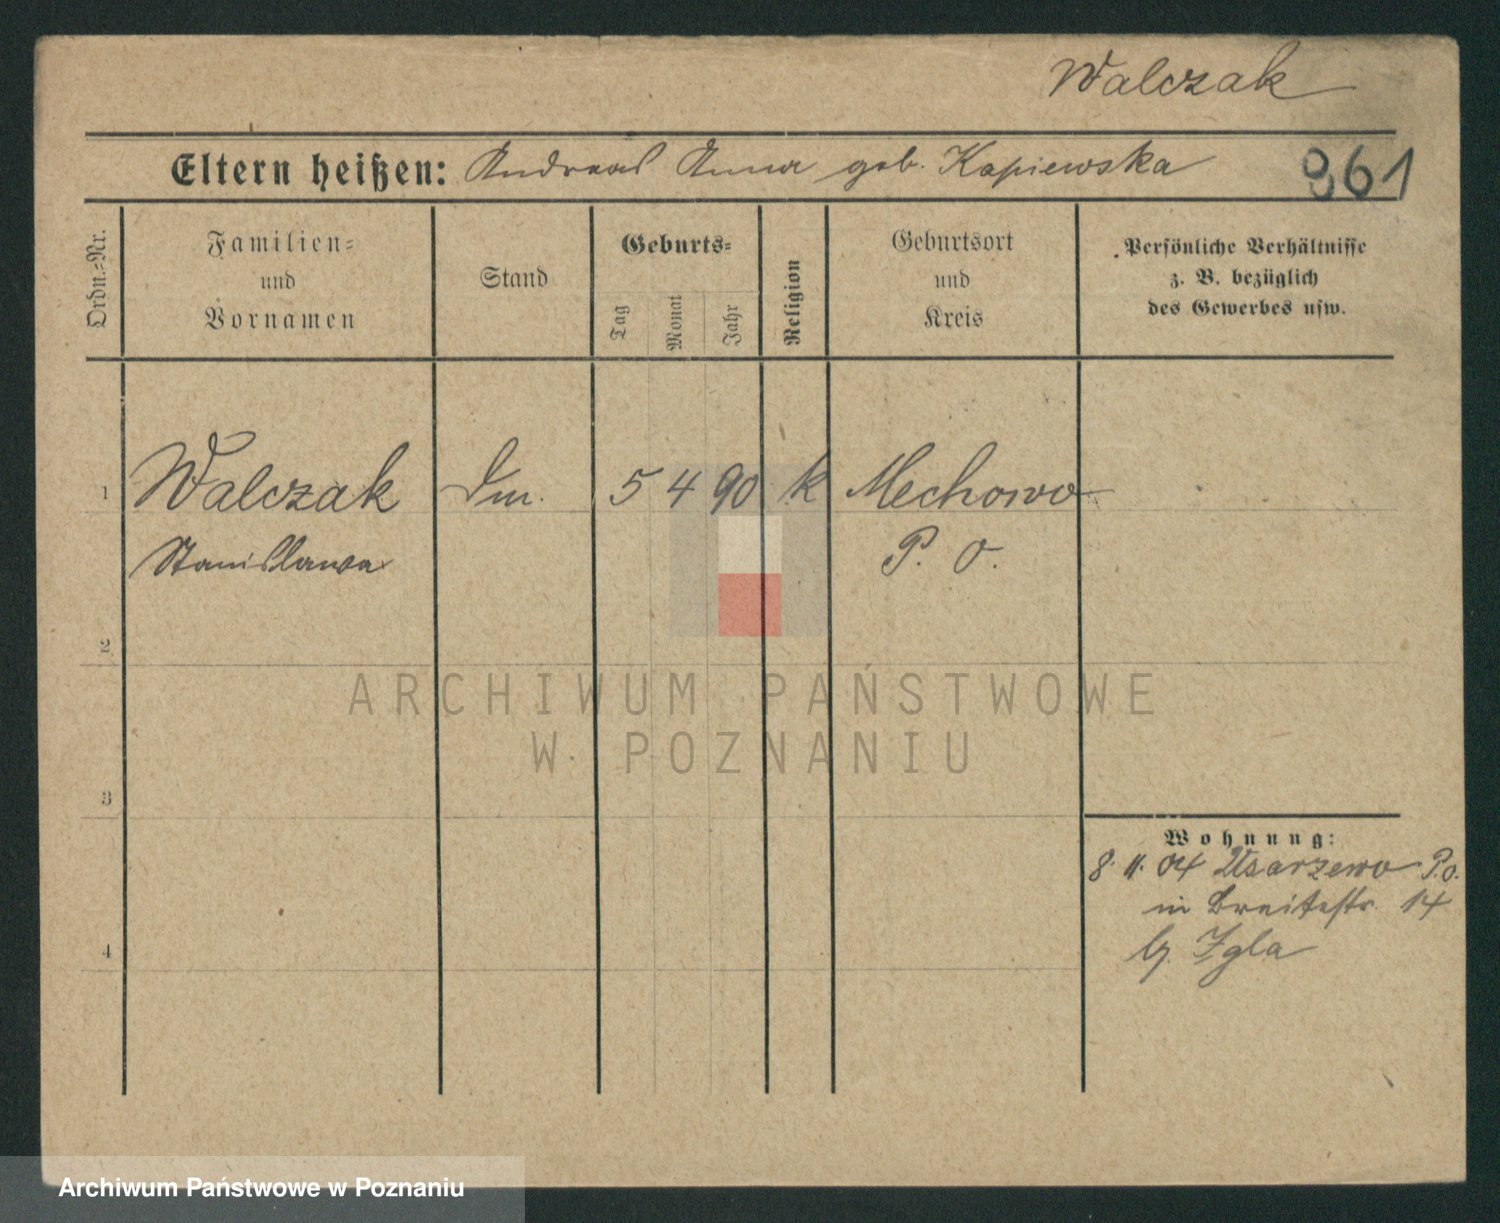 Walczak
Eltern heißen: Andreas Anna geb. Kapiewska
961
Ordn.-Nr.
Familien-
und
Vornamen
Stand
Geburts-
Tag
Monat
Jahr
Religion
Geburtsort
und
Kreis
Persönliche Verhältnisse
z. B. bezüglich
des Gewerbes usw.
1 Walczak 5 4 90 k Mechowo
Stanislawa P. O.
2
3
4
Wohnung:
8. 11. 04 Usarzewo P.O.
in Breitestr. 14
Igla
ARCHIWUM PAŃSTWOWE
W POZNANIU
Archiwum Państwowe w Poznaniu